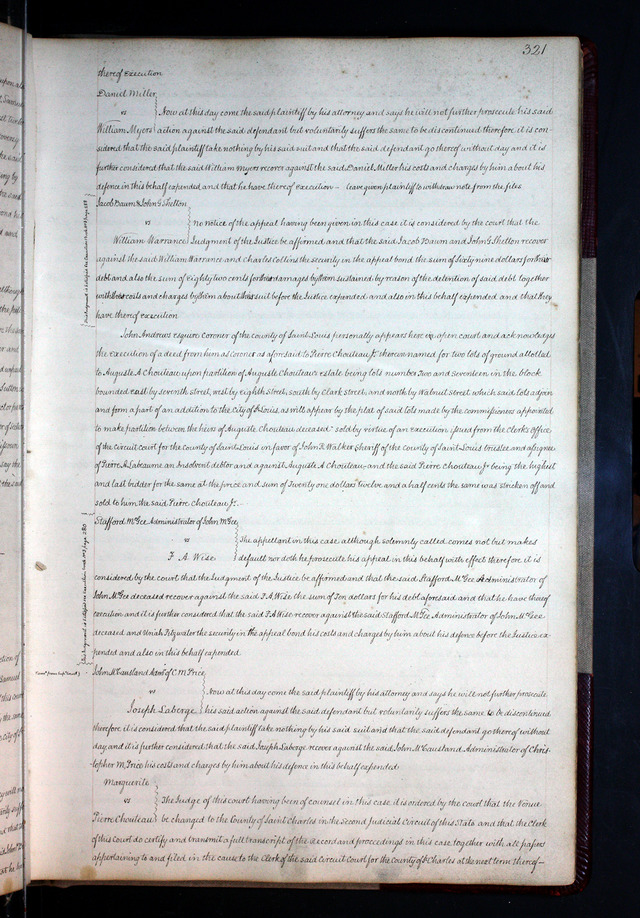 321
thereof Execution
Daniel Miller
vs
Now at this day come the said plaintiff by his attorney and says he will not further prosecute his said
William Myers action against the said defendant but voluntarily suffers the same to be discontinued therefore it is con-
sidered that the said plaintiff take nothing by his said suit and that the said defendant go thereof without day and it is
further considered that the said William Myers recover against the said Daniel Miller his costs and charges by him about his
defence in this behalf expended and that he have thereof execution – leave given plaintiff to withdraw note from the files
Jacob Daum & John G Shelton
vs
no notice of the appeal having been given in this case it is considered by the court that the
William Warrance Judgment of the Justice be affirmed and that the said Jacob Daum and John G Shelton recover
against the said William Warrance and Charles Collins the security in the appeal bond the sum of sixty nine dollars for their
debt and also the sum of Eighty two cents for their damages by them sustained by reason of the detention of said debt together
with their costs and charges by them about their suit before the Justice expended and also in this behalf expended and that they
have thereof execution
John Andrews esquire Coroner of the county of Saint Louis personally appears here in open court and acknowledges
the execution of a deed from him as coroner as aforesaid to Pierre Chouteau Jr. therein named for two lots of ground allotted
to Auguste A Chouteau upon partition of Auguste Chouteau's estate being lots number Two and Seventeen in the block
bounded east by seventh street, west by eighth street, south by Clark street, and north by Walnut street which said lots adjoin
and form a part of an addition to the city of St Louis, as will appear by the plat of said lots made by the commissioners appointed
to make partition between the heirs of Auguste Chouteau deceased sold by virtue of an execution issued from the Clerk's office
of the circuit court for the county of Saint Louis in favor of John K Walker Sheriff of the County of Saint Louis trustee and assignee
of Pierre A Labeaume an Insolvent debtor and against Auguste A Chouteau and the said Pierre Chouteau Jr being the highest
and last bidder for the same at the price and sum of Twenty one dollars twelve and a half cents the same was stricken off and
sold to him the said Pierre Chouteau Jr. –
Stafford McGee Administrator of John McGee
vs
The appellant in this case although solemnly called comes not but makes
F. A. Wise default nor doth he prosecute his appeal in this behalf with effect therefore it is
considered by the court that the Judgment of the Justice be affirmed and that the said Stafford McGee Administrator of
John McGee deceased recover against the said F A Wise the sum of Ten dollars for his debt aforesaid and that he have thereof
execution and it is further considered that the said F A Wise recover against the said Stafford McGee Administrator of John McGee
deceased and Uriah Fitzwater the security in the appeal bond his costs and charges by him about his defence before the Justice ex-
pended and also in this behalf expended
John McCausland Admr of C. M. Price
vs
Now at this day come the said plaintiff by his attorney and says he will not further prosecute
Joseph Laberge his said action against the said defendant but voluntarily suffers the same to be discontinued
therefore it is considered that the said plaintiff take nothing by his said suit and that the said defendant go thereof without
day, and it is further considered that the said Joseph Laberge recover against the said John McCausland Administrator of Chris-
topher M Price his costs and charges by him about his defence in this behalf expended
Marguerite
vs
The Judge of this court having been of counsel in this case it is ordered by the court that the Venue
Pierre Chouteau be changed to the County of Saint Charles in the Second Judicial Circuit of this State and that the Clerk
of this Court do certify and transmit a full transcript of the record and proceedings in this case, together with all papers
appertaining to and filed in the cause to the Clerk of the said Circuit Court for the County of St Charles at the next term thereof –